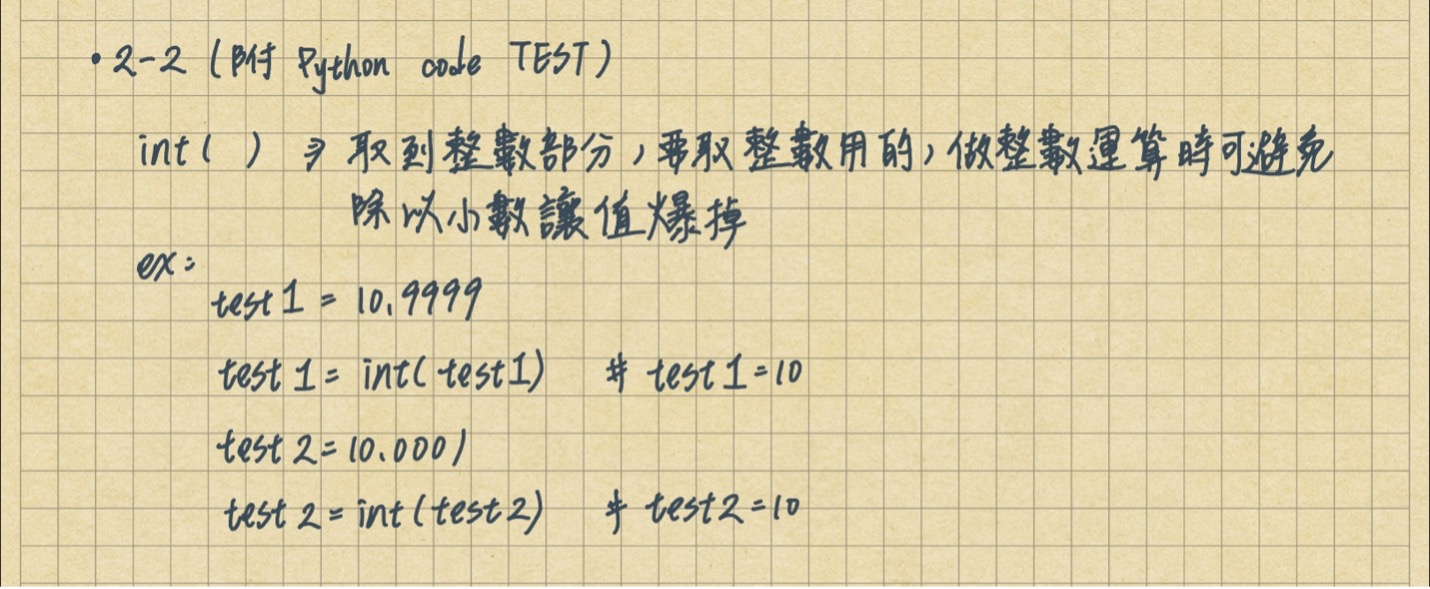 •2-2 (附 Python code TEST)
int( ) ⇒ 取到整數部分,要取整數用的,做整數運算時可避免
除以小數讓值爆掉
ex:
test1 = 10.9999
test1 = int(test1) # test1=10
test2=10.0001
test2=int(test2) # test2=10